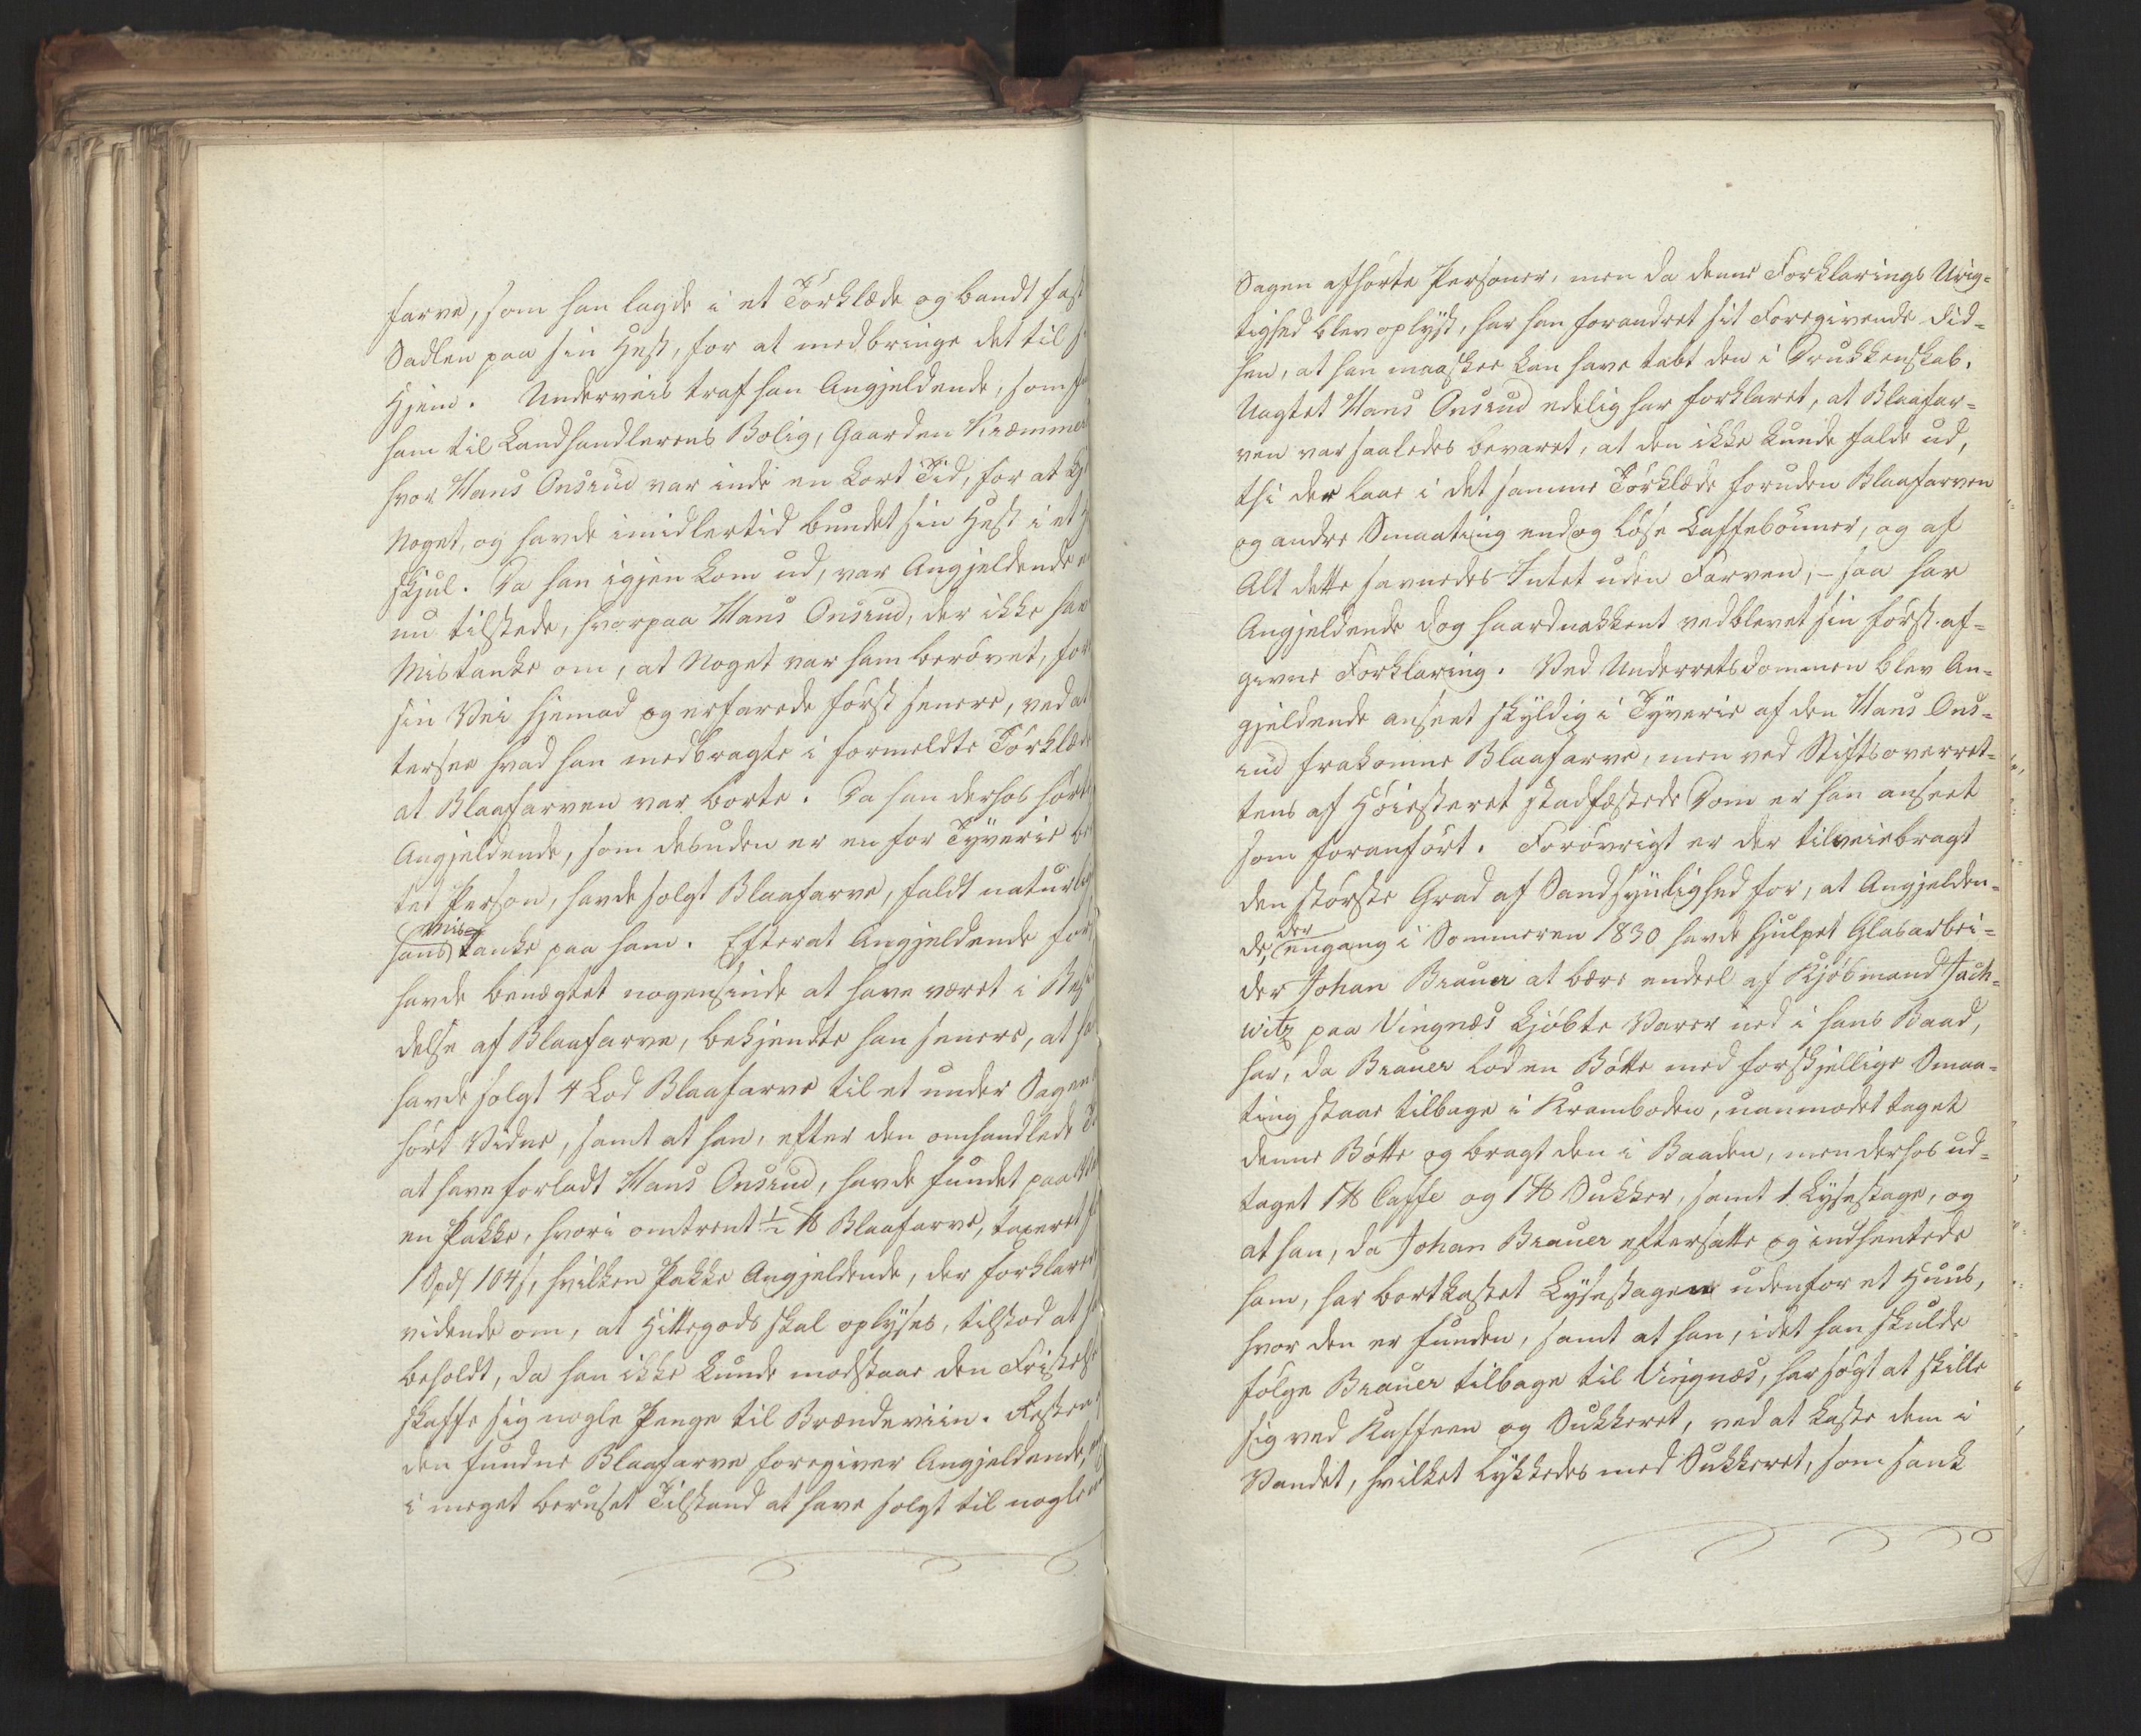 farve, som han lagde i et Tørklæde og bandt fast
Sadlen paa sin Hest, for at medbringe det til
Hjem. Underveis traf han Angjeldende, som
ham til Landhandlerens Bolig, Gaarden Kræmmer
hvor Hans Onsrud var inde en kort Tid, for at
Noget, og havde imidlertid bundet sin Hest i et
Skjul. Da han igjen kom ud, var Angjeldende
nu tilstede, hvorpaa Hans Onsrud, der ikke hav
Mistanke om, at Noget var ham berøvet, for
sin Vei hjemad og erfarede først senere, ved at
tersee hvad han medbragte i formeldte Tørklæde
at Blaafarven var borte. Da han derhos hørte
Angjeldende, som desuden er en for Tyverie be
tet Person, havde solgt Blaafarve, faldt naturlig
hans Mistanke paa ham. Efterat Angjeldende først
havde benægtet nogensinde at have været i Besid
delse af Blaafarve, bekjendte han senere, at ha
havde solgt 4 Lod Blaafarve til et under Sagen
hørt Vidne, samt at han, efter den omhandlede
at have forladt Hans Onsrud, havde fundet paa
en Pakke, hvori omtrent ½ ℔ Blaafarve, taxeret
1 Spd 104 s, hvilken Pakke Angjeldende, der forklarer
vidende om, at Hittegods skal oplyses, tilstod at
beholdt, da han ikke kunde modstaae den Fristelse
skaffe sig nogle Penge til Brændeviin. Resten
den fundne Blaafarve foregiver Angjeldende,
i meget beruset Tilstand at have solgt til nogle
Sagen afhørte Personer, men da denne Forklarings Urig-
tighed blev oplyst, har han forandret sit Foregivende did-
hen, at han maaskee kan have tabt den i Drukkenskab.
Uagtet Hans Onsrud edelig har forklaret, at Blaafar-
ven var saaledes bevaret, at den ikke kunde falde ud,
thi der laae i det samme Tørklæde foruden Blaafarven
og andre Smaating endog løse Caffebønner, og af
Alt dette savnedes Intet uden Farven, – saa har
Angjeldende dog haardnakkent vedblevet sin først af-
givne Forklaring. Ved Underretsdommen blev An-
gjeldende anseet skyldig i Tyverie af den Hans Ons-
rud frakomne Blaafarve, men ved Stiftsoverret-
tens af Høiesteret stadfæstede Dom er han anseet
som foranført. Forøvrigt er der tilveiebragt
den største Grad af Sandsynlighed for, at Angjelden-
de, der engang i Sommeren 1830 havde hjulpet Glasarbei-
der Johan Brauer at bære endeel af Kjøbmand Jach-
witz paa Vingnæs kjøbte Varer ned i hans Baad,
har, da Brauer lod en Bøtte med forskjellige Smaa-
ting staae tilbage i Kramboden, uanmodet taget
denne Bøtte og bragt den i Baaden, men derhos ud-
taget 1 ℔ Caffe og 1 ℔ Sukker, samt 1 Lysestage, og
at han, da Johan Brauer eftersatte og indhentede
ham, har bortkastet Lysestagen udenfor et Huus,
hvor den er funden, samt at han, idet han skulde
følge Brauer tilbage til Vingnæs, har søgt at skille
sig ved Kaffeen og Sukkeret, ved at kaste dem i
Vandet, hvilket lykkedes med Sukkeret, som sank